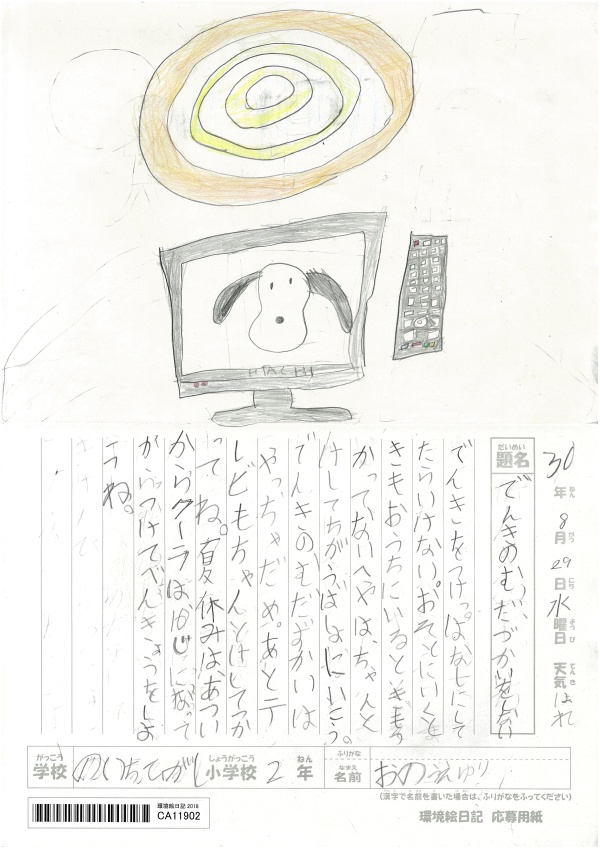 HITACHI
30年8月29日水曜日 天気 はれ
ねん がつ にち ようび てんき
だいめい
題名 でんきのむだづかいをしない
でんきをつけっぱなしにして
たらいけない。おそとにいくと
きもおうちにいるときもつ
かっていないへやはちゃんと
けしてちがうばしょにいこう。
でんきのむだずかいは
やっちゃだめ。あとテ
レビもちゃんとけしてつか
ってね。夏休みはあつい
からクーラはかじになって
からつけてべんきょうをしよ
うね。
がっこう しょうがっこう ねん ふりがな
学校 のいちひがし 小学校 2 年 なまえ 名前 おのえゆり
(漢字で名前を書いた場合は、ふりがなをふってください)
環境絵日記 2018
CA11902
環境絵日記 応募用紙